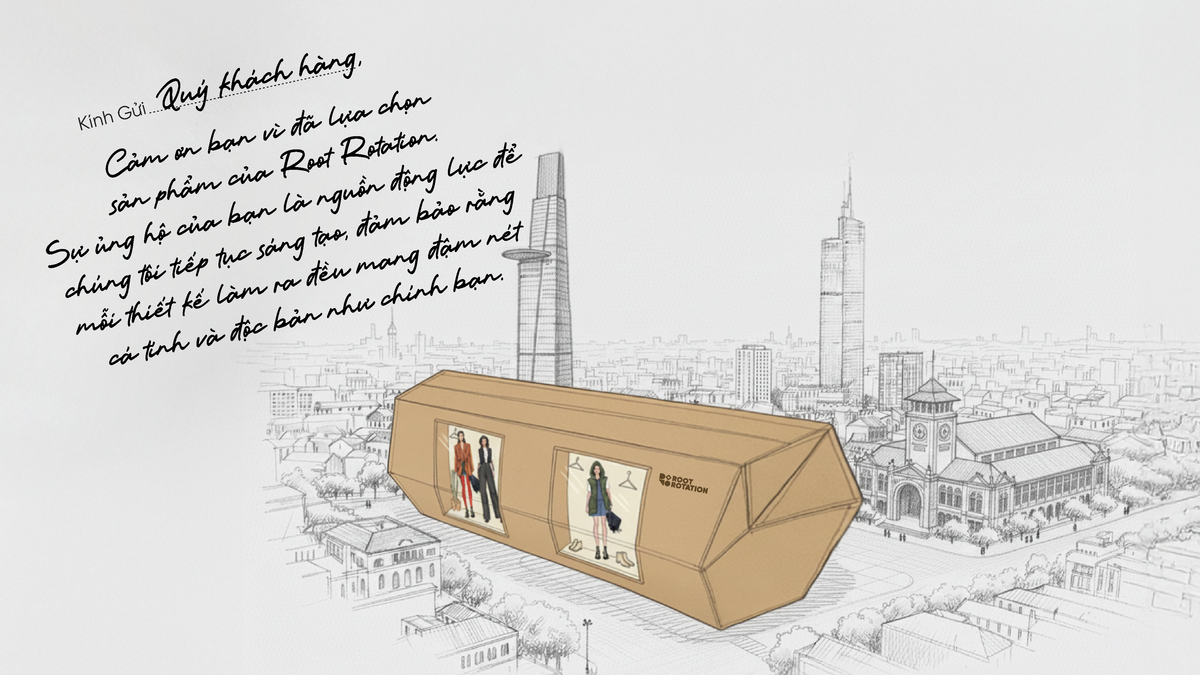 Kính Gửi Quý khách hàng,
Cảm ơn bạn vì đã lựa chọn
sản phẩm của Root Rotation.
Sự ủng hộ của bạn là nguồn động lực để
chúng tôi tiếp tục sáng tạo, đảm bảo rằng
mỗi thiết kế làm ra đều mang đậm nét
cá tính và độc bản như chính bạn.
ROOT
ROTATION